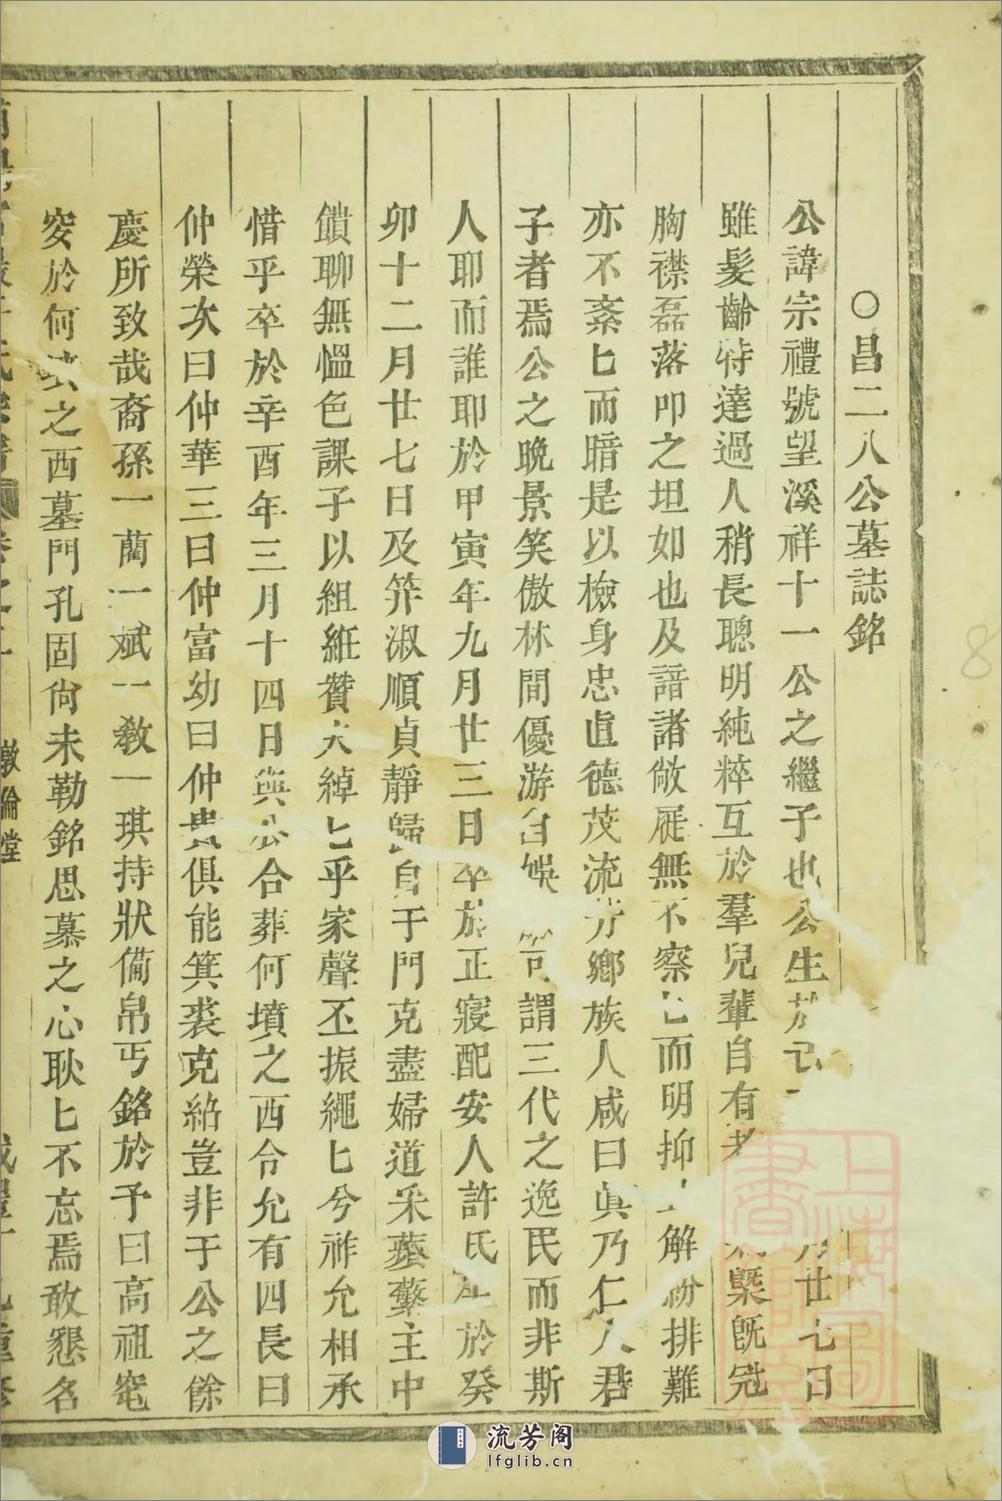 〇昌二八公墓誌銘
公諱宗禮號望溪祥十一公之繼子也公生於己 月廿七日
雖髮齡特達過人稍長聰明純粹互於羣兒輩自有 槩旣冠
胸襟磊落叩之坦如也及諳諸敞屣無不察匕而明抑 解紛排難
亦不紊匕而暗是以檢身忠直德茂流芳鄉族人咸曰眞乃仁人君
子者焉公之晚景笑傲林間優游自娛 可謂三代之逸民而非斯
人耶而誰耶於甲寅年九月廿三日卒於正寢配安人許氏生於癸
卯十二月廿七日及笄淑順貞靜歸自于門克盡婦道采蘋蘩主中
饋聊無慍色課子以組紝贊夫綽匕乎家聲丕振繩匕兮祚允相承
惜乎卒於辛酉年三月十四日與公合葬何墳之西合允有四長曰
仲榮次曰仲華三曰仲富幼曰仲貴俱能箕裘克紹豈非于公之餘
慶所致哉裔孫一蘭一斌一敎一琪持狀備帛丐銘於予曰高祖窀
安於何墳之西墓門孔固尙未勒銘思慕之心耿匕不忘焉敢懇名
敦倫堂
流芳阁
lfglib.cn